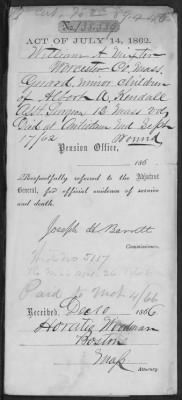 No. 138.559
ACT OF JULY 14, 1862.
William A
Worcester Co, Mass.
Guard, minor children
of Albert A. Kendall
Asst Surgeon 12 Mass Vol
Died at Antietam Md Sept
17/62 Wound
Pension Office,
186 .
Respectfully referred to the Adjutant
General, for official evidence of service
and death.
Joseph H. Barrett
Commissioner.
5157
Paid to 4/66
Received, Dec 10 1866
Horatio Woodman
Boston
Mass
Attorney.